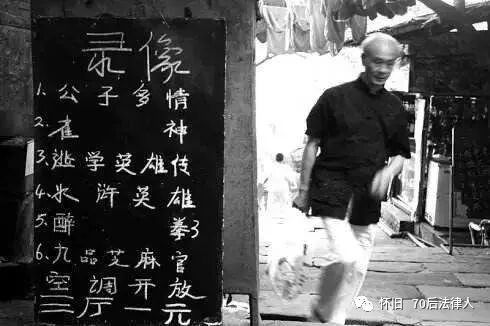 录像
1. 公子多情
2. 雀神
3. 逃学英雄传
4. 水浒英雄
5. 醉拳3
6. 九品芝麻官
空调开放
三厅一元
怀旧 70后法律人